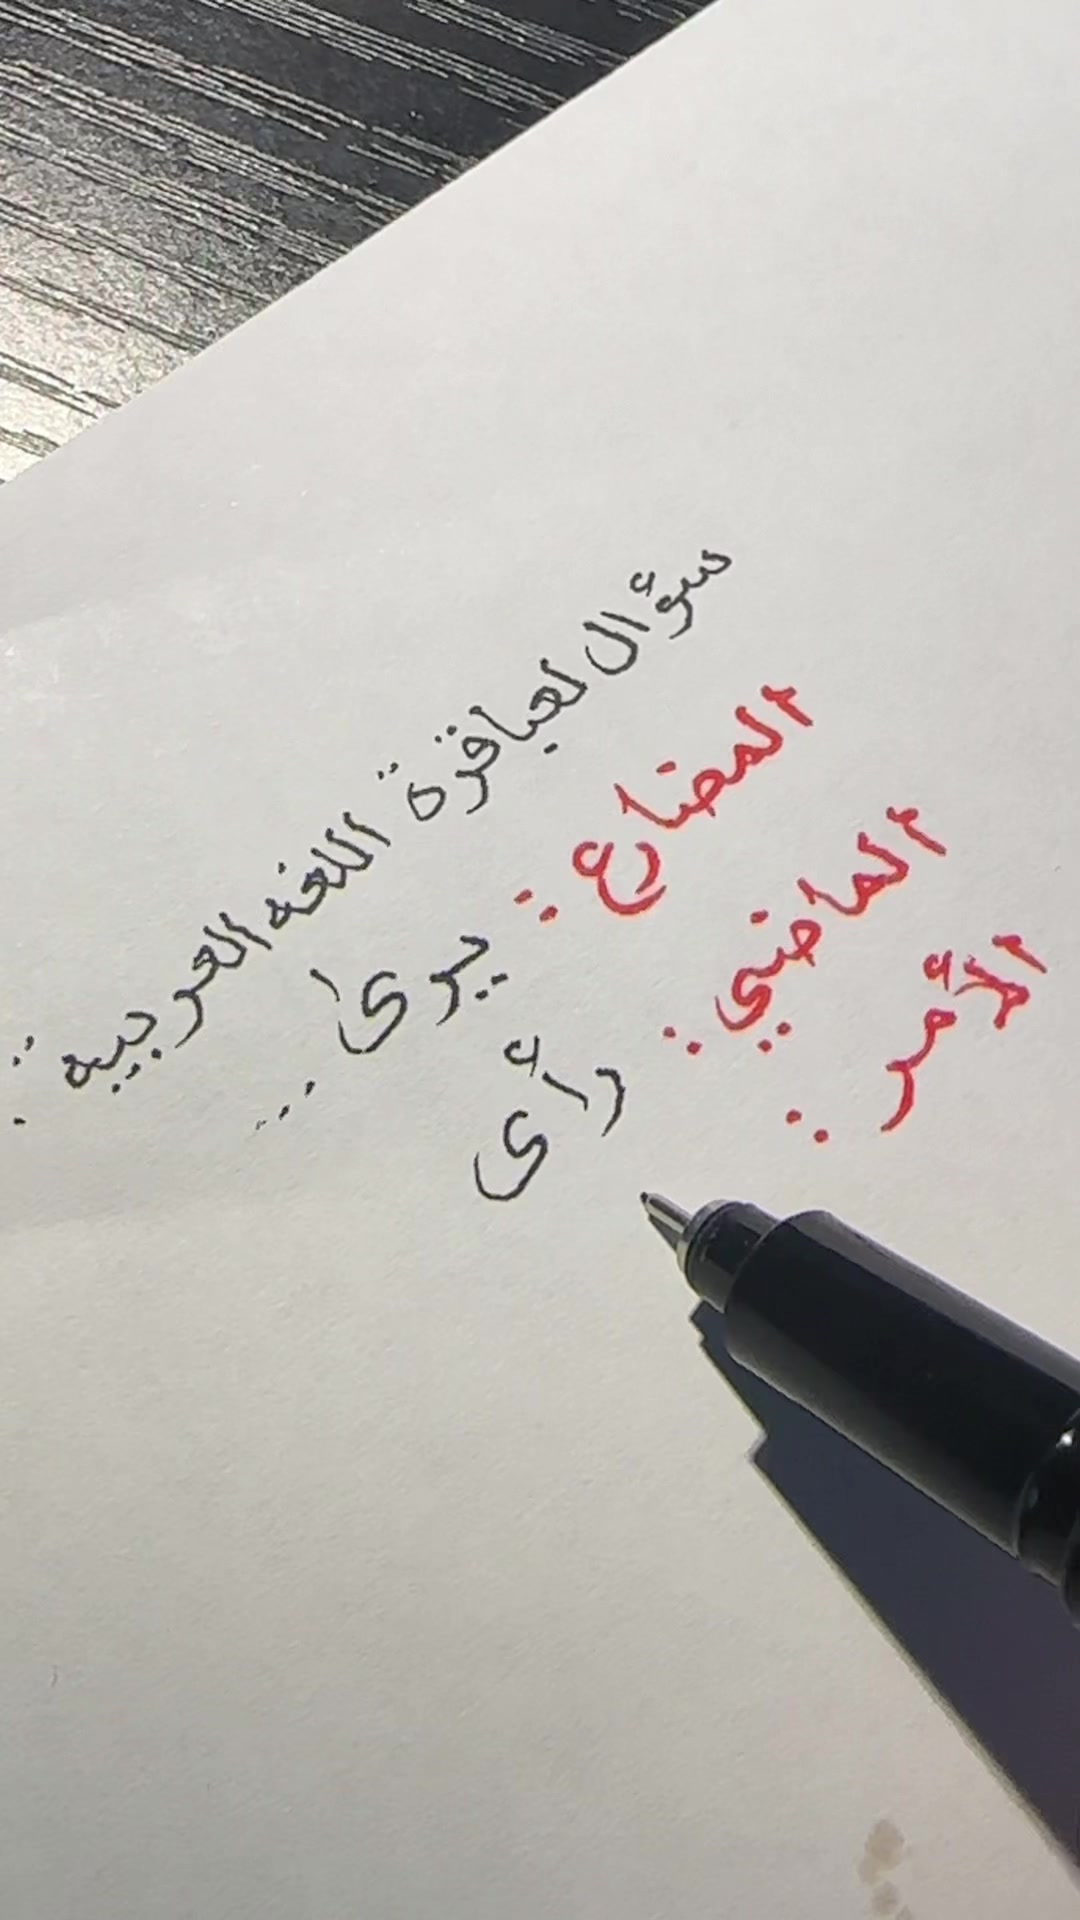 سؤال لعباقرة اللغه العربيه :
المضارع : يرىٰ ...
الماضي : رأى
الأمر :